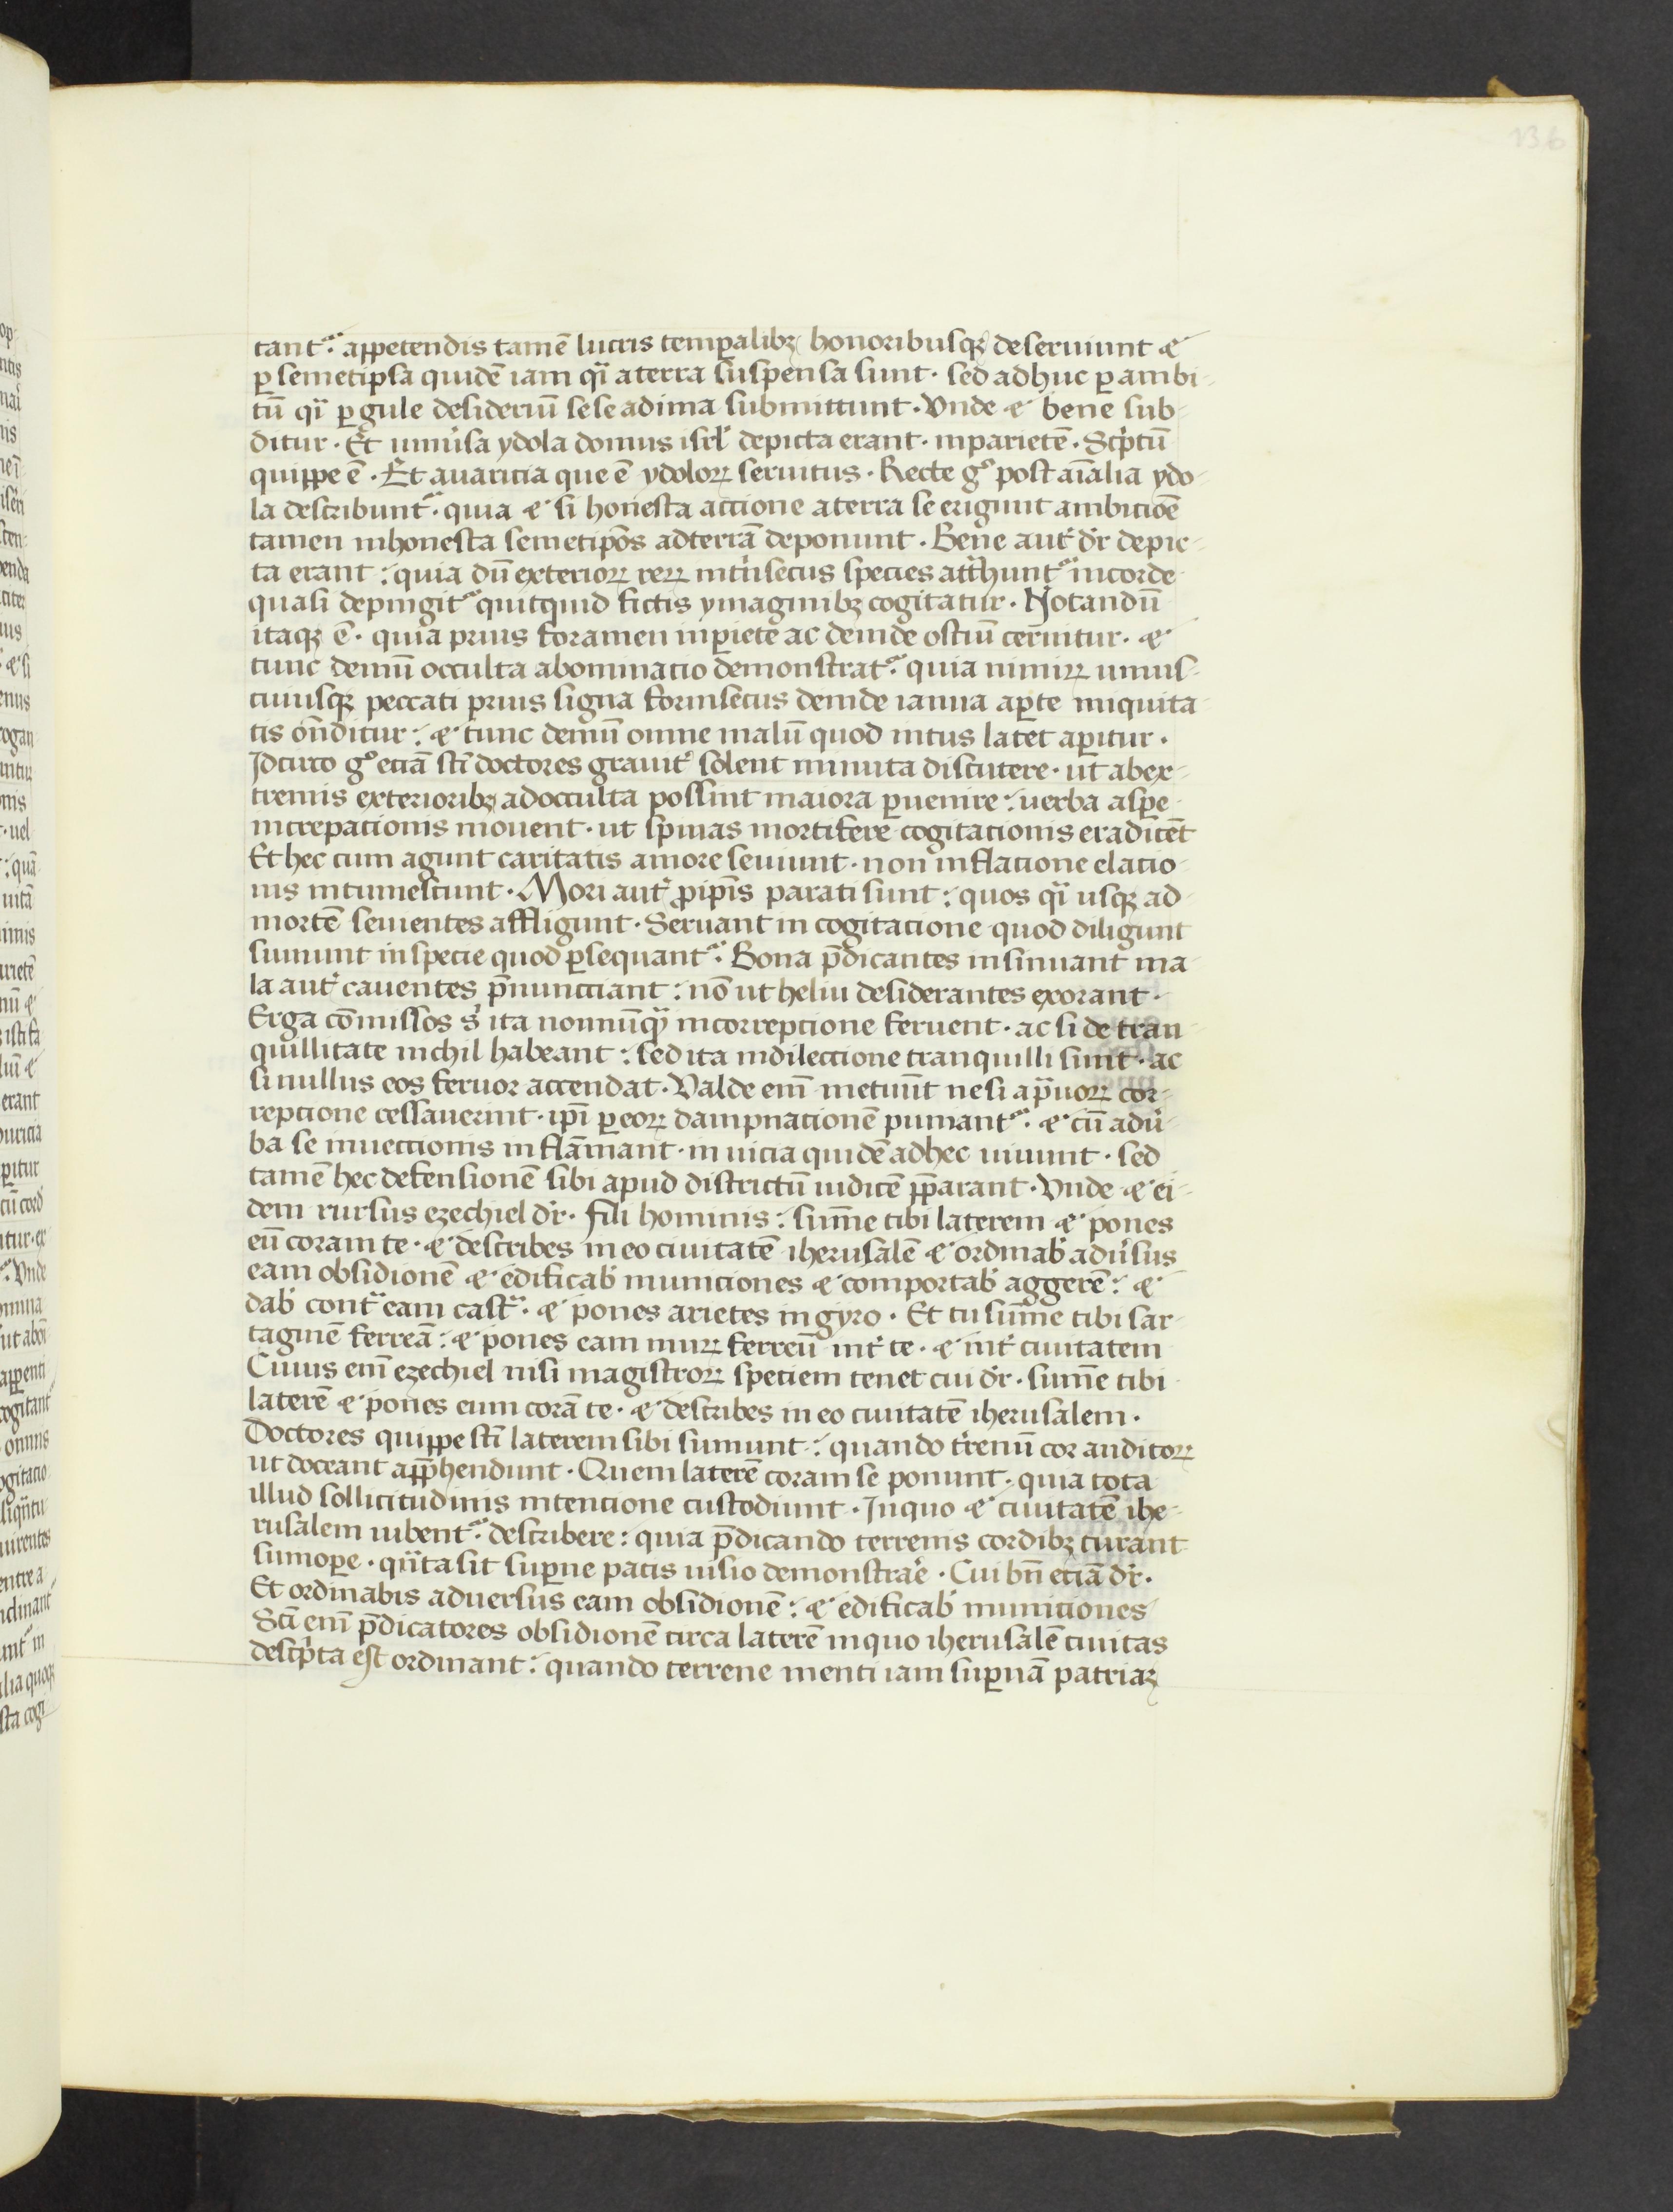 136
tantᷣ. appetendis tamē lucris temꝑalibꝫ honoribusqꝫ deseruiunt &
ꝑ semetipsa quidē iam qͣi a terra suspensa sunt · sed adhuc ꝑ ambi-
tū qͣi ꝑ gule desideriū sese ad ima submittunt · Vnde & bene sub-
ditur · Et uniuͥsa ydola domus isrl̓ depicta erant · in parietē · Scͥptū
quippe ē · Et auaricia que ē ydoloꝝ seruitus · Recte gͦ post aīalia ydo-
la describuntᷣ. quia & si honesta accione a terra se erigunt ambicioē
tamen inhonesta semetip̄os ad terrā deponunt · Bene aut̓ dr̄ depic-
ta erant : quia dū exterioꝝ reꝝ int̓nsecus species att̓huntᷣ in corde
quasi depingitᷣ quitquid fictis ymaginibꝫ cogitatur · Notandū
itaqꝫ ē · quia prius foramen in ꝑiete ac deinde ostiū cernitur · &
tunc demū occulta abominacio demonstratᷣ. quia nimiꝝ unius-
cuiusqꝫ peccati prius signa forinsecus deinde ianua aꝑte iniquita-
tis on̄ditur : & tunc demū omne malū quod intus latet aꝑitur ·
Idcirco gͦ eciā sc̄i doctores grauit̓ solent minuta discutere · ut ab ex-
tremis exterioribꝫ ad occulta possint maiora ꝑuenire : uerba asꝑe
increpacionis mouent · ut spinas mortifere cogitacionis eradicēt
Et hec cum agunt caritatis amore seuiunt · non inflacione elacio-
nis intumescunt · Mori aut̓ ꝓ ip̄is parati sunt : quos qͣi usqꝫ ad
mortē seuientes affligunt · Seruant in cogitacione quod diligunt
sumunt in specie quod ꝑsequantᷣ. Bona p̄dicantes insinuant ma-
la aut̓ cauentes p̄nuncciant : nō ut heliu desiderantes exorant ·
Erga cōmissos s̓ ita nonnūqͣ in correpcione feruent · ac si de tran
quillitate nichil habeant : sed ita in dileccione tranquilli sunt · ac
si nullus eos feruor accendat · Valde em̄ metuūt ne si a p̄uoꝝ cor-
repcione cessauerint · ip̄i ꝑ eoꝝ dampnacionē puniantᷣ. & cū ad u̓-
ba se inueccionis inflāmant · in uicia quidē adhec uiuunt · sed
tamē hec defensionē sibi apud districtū iudicē p̄parant · Vnde & ei-
dem rursus ezechiel dr̄ · fili hominis : sum̄e tibi laterem & pones
eū coram te · & describes in eo ciuitatē iherusalē & ordinab̓ adu̓sus
eam obsidionē & edificab̓ municiones & comportab̓ aggerē : &
dab̓ contͣ eam castͣ. & pones arietes in gyro · Et tu sum̄e tibi sar-
taginē ferreā : & pones eam muꝝ ferreū int̓ te · & int̓ ciuitatem
Cuius em̄ ezechiel nisi magistroꝝ speciem tenet cui dr̄ · sum̄e tibi
laterē & pones eum corā te · & describes in eo ciuitatē iherusalem ·
Doctores quippe sc̄i laterem sibi sumunt : quando t̓renū cor auditoꝝ
ut doceant app̄hendunt · Quem laterē coram se ponunt · quia tota
illud sollicitudinis intencione custodiunt · In quo & ciuitatē ihe-
rusalem iubentᷣ. describere : quia p̄dicando terrenis cordibꝫ curant
sumoꝑe · qͣta sit suꝑne pacis uisio demonstrar̄e · Cui bn̄ eciā dr̄ ·
Et ordinabis aduersus eam obsidionē : & edificab̓ municiones
Sc̄i em̄ p̄dicatores obsidionē circa laterē in quo iherusalē ciuitas
descͥpta est ordinant : quando terrene menti iam suꝑnā patriaꝫ